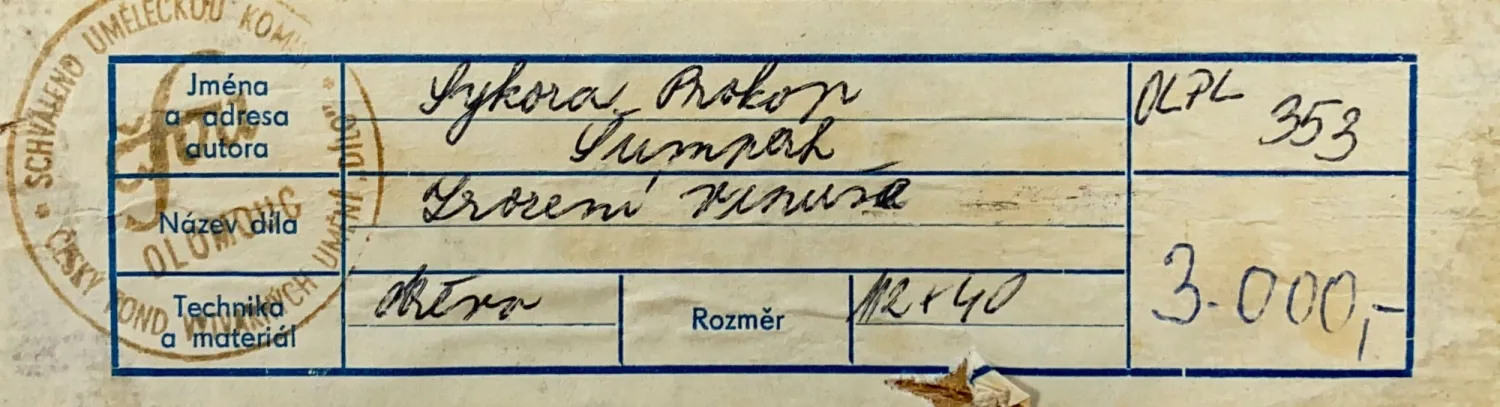 SCHVÁLENO UMĚLECKOU KOMISÍ
ČESKÝ FOND VÝTVARNÝCH UMĚNÍ „DÍLO"
OLOMOUC
Jména
a adresa
autora
Sykora Prokop
Šumperk
OLPL 353
Název díla
Zrození venuše
3.000,-
Technika
a materiál
dřevo
Rozměr
112+40